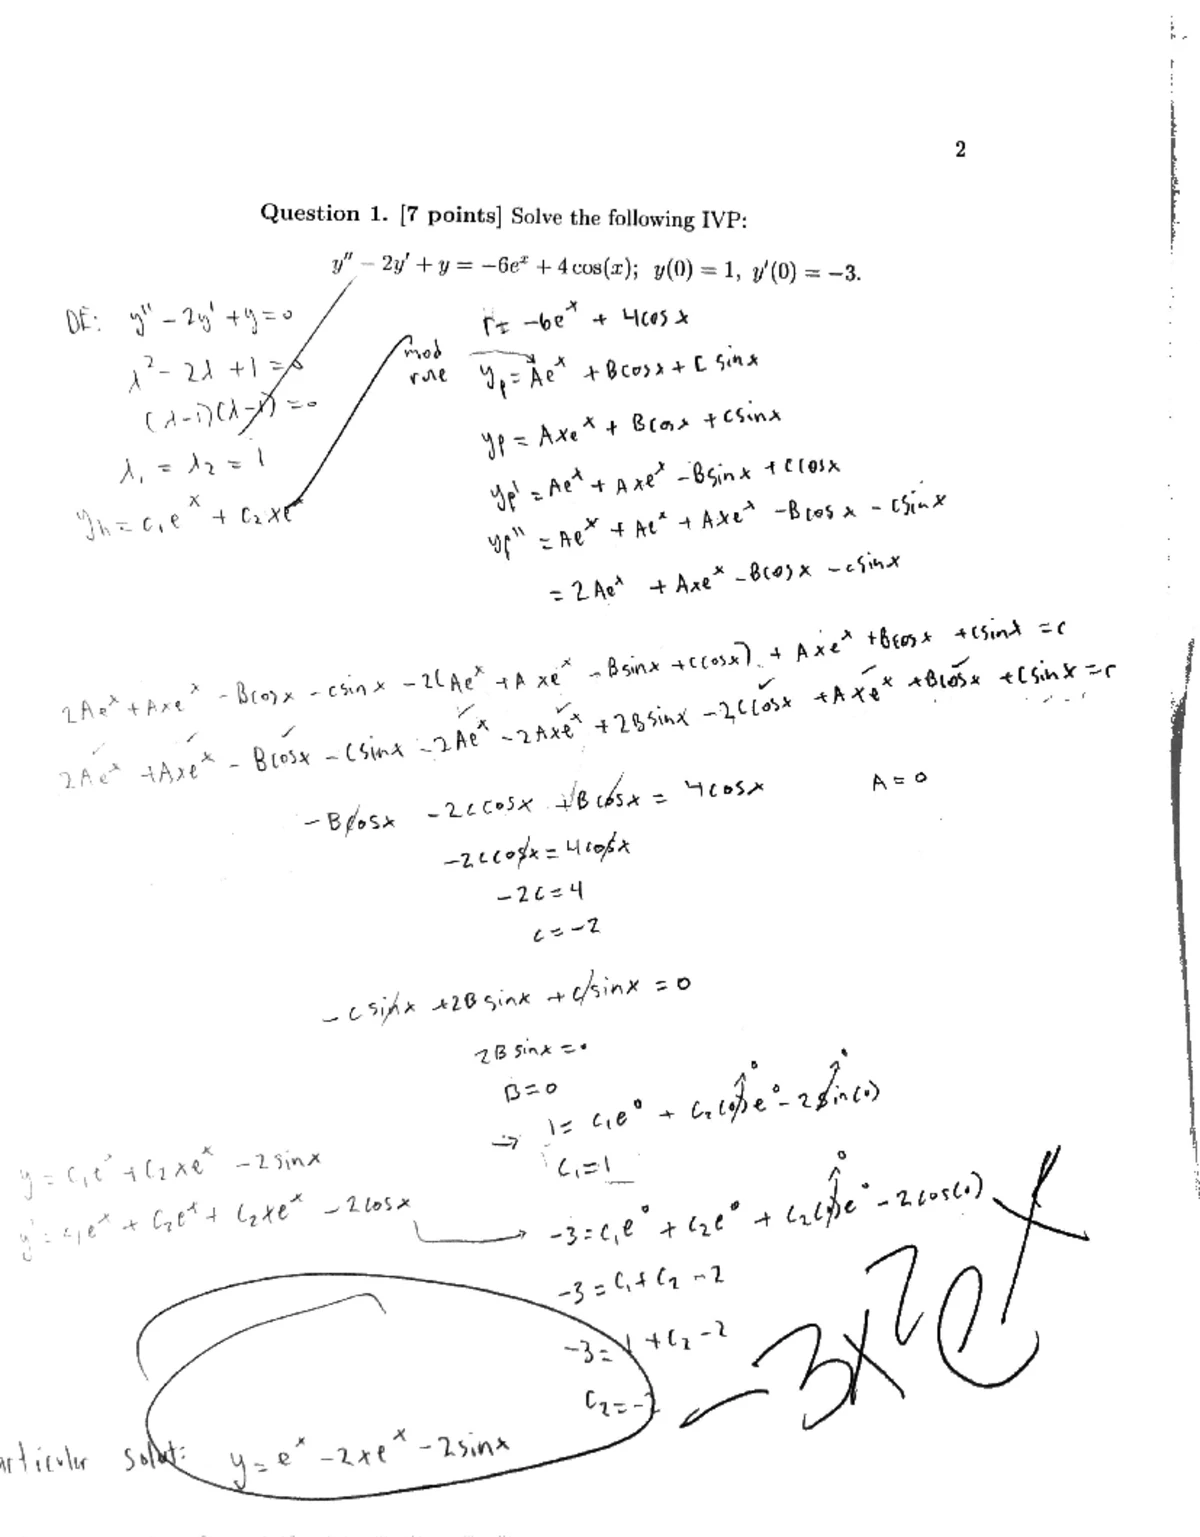 2
Question 1. [7 points] Solve the following IVP:
y'' - 2y' + y = -6e^x + 4cos(x); y(0) = 1, y'(0) = -3.
DE: y'' - 2y' + y = 0
λ² - 2λ + 1 = 0
(λ-1)(λ-1) = 0
λ₁ = λ₂ = 1
y_h = c₁e^x + c₂xe^x
mod rule
r = -6e^x + 4cosx
y_p = Ae^x + Bcosx + Csinx
y_p = Axe^x + Bcosx + Csinx
y_p' = Ae^x + Axe^x - Bsinx + Ccosx
y_p'' = Ae^x + Ae^x + Axe^x - Bcosx - Csinx
= 2Ae^x + Axe^x - Bcosx - Csinx
2Ae^x + Axe^x - Bcosx - Csinx - 2(Ae^x + Axe^x - Bsinx + Ccosx) + Axe^x + Bcosx + Csinx = r
2Ae^x + Axe^x - Bcosx - Csinx - 2Ae^x - 2Axe^x + 2Bsinx - 2Ccosx + Axe^x + Bcosx + Csinx = r
-Bcosx - 2Ccosx + Bcosx = 4cosx A = 0
-2Ccosx = 4cosx
-2C = 4
C = -2
-Csinx + 2Bsinx + Csinx = 0
2Bsinx = 0
B = 0
⇒ 1 = c₁e^0 + c₂(0)e^0 - 2sin(0)
c₁ = 1
y = c₁e^x + c₂xe^x - 2sinx
y' = c₁e^x + c₂e^x + c₂xe^x - 2cosx
-3 = c₁e^0 + c₂e^0 + c₂(0)e^0 - 2cos(0)
-3 = c₁ + c₂ - 2
-3 = 1 + c₂ - 2
c₂ = -2
-3x²e^x
articular solut: y = e^x - 2xe^x - 2sinx